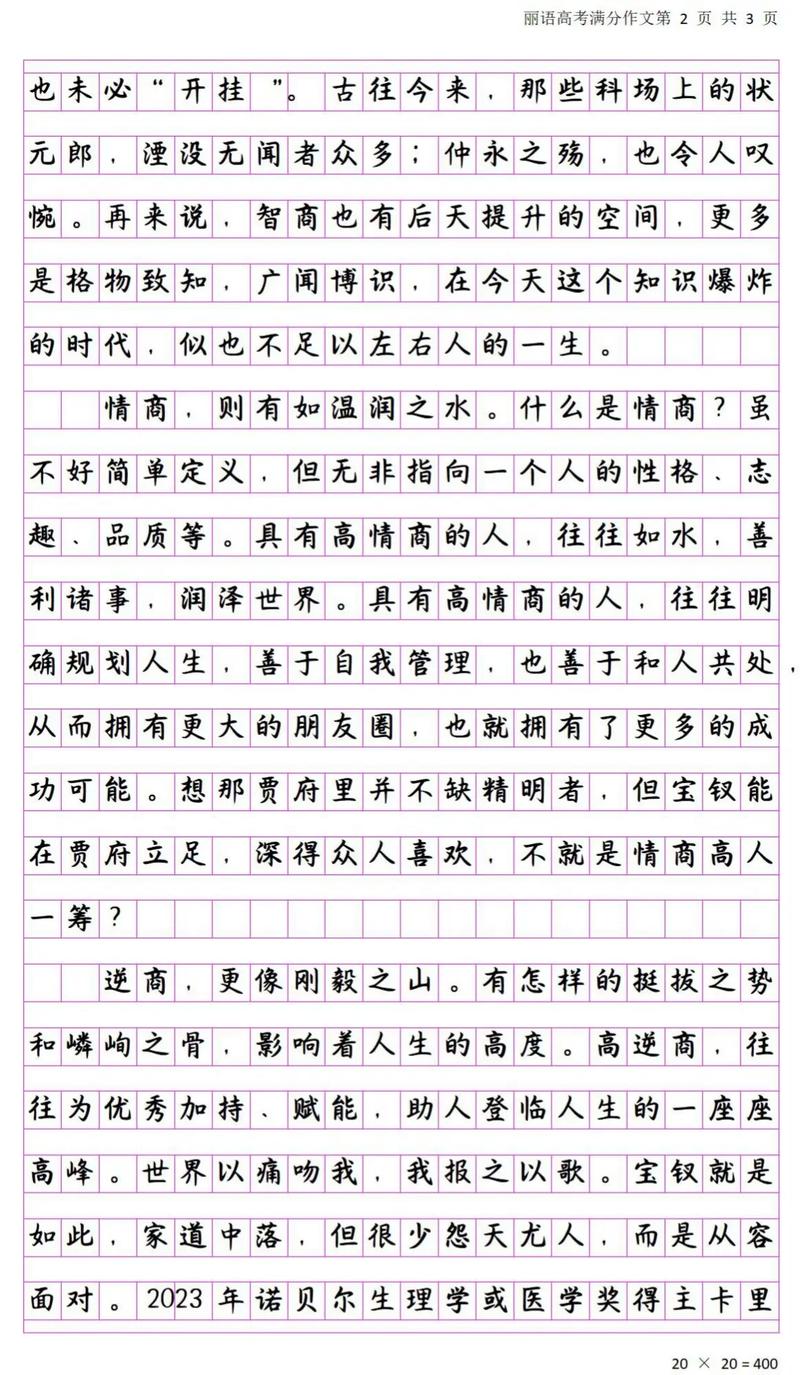 丽语高考满分作文第 2 页 共 3 页
也未必“开挂”。古往今来，那些科场上的状
元郎，湮没无闻者众多；仲永之殇，也令人叹
惋。再来说，智商也有后天提升的空间，更多
是格物致知，广闻博识，在今天这个知识爆炸
的时代，似也不足以左右人的一生。
情商，则有如温润之水。什么是情商？虽
不好简单定义，但无非指向一个人的性格、志
趣、品质等。具有高情商的人，往往如水，善
利诸事，润泽世界。具有高情商的人，往往明
确规划人生，善于自我管理，也善于和人共处，
从而拥有更大的朋友圈，也就拥有了更多的成
功可能。想那贾府里并不缺精明者，但宝钗能
在贾府立足，深得众人喜欢，不就是情商高人
一筹？
逆商，更像刚毅之山。有怎样的挺拔之势
和嶙峋之骨，影响着人生的高度。高逆商，往
往为优秀加持、赋能，助人登临人生的一座座
高峰。世界以痛吻我，我报之以歌。宝钗就是
如此，家道中落，但很少怨天尤人，而是从容
面对。2023年诺贝尔生理学或医学奖得主卡里
20 × 20 = 400